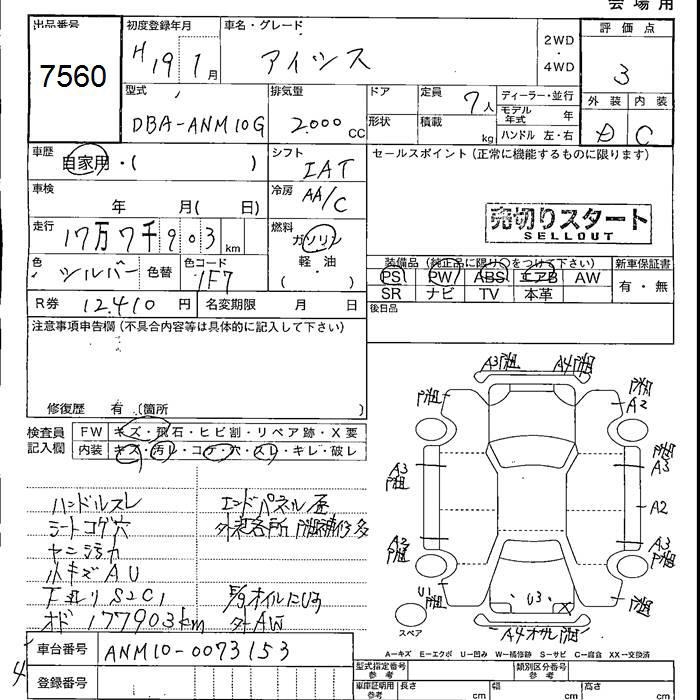 会場用
出品番号 初度登録年月 車名・グレード 評価点
7560
H 19 1月 アイシス 2WD・4WD 3
型式 排気量 ドア 定員 7人 ディーラー・並行 外装 内装
DBA-ANM10G 2000 CC 形状 積載 kg モデル年式 年 ハンドル 左・右 C
車歴 自家用・( ) シフト IAT セールスポイント(正常に機能するものに限ります)
車検 年 月( 日) 冷房 AA/C
売切りスタート
SELLOUT
走行 17万7千903 km 燃料 ガソリン
軽・油
( )
色 シルバー 色替 色コード 1F7
装備品(純正品に限り○をつけて下さい) 新車保証書
PS PW ABS エアB AW 有・無
SR ナビ TV 本革
R券 12.410 円 名変期限 月 日
後日品
注意事項申告欄(不具合内容等は具体的に記入して下さい)
修復歴 有 (箇所 )
検査員 FW キズ・飛石・ヒビ割・リペア跡・X要
記入欄 内装 キズ・汚レ・コゲ・穴・スレ・キレ・破レ
ハンドルスレ エンドパネル
シートコゲ穴 外装各所
ヤニ汚れ
小キズAU
下廻りS2C1 E/gオイルにじみ
オド177903km AW
車台番号 ANM10-0073153
登録番号
A3 A4
A2
A3 A3
A2
A2 A3
U1 U3 X
A4
スペア
A-キズ E-エクボ U-凹み W-補修跡 S-サビ C-腐食 XX-交換済
型式指定番号 類別区分番号
車庫証明用参考 長さ cm 幅 cm 高さ cm